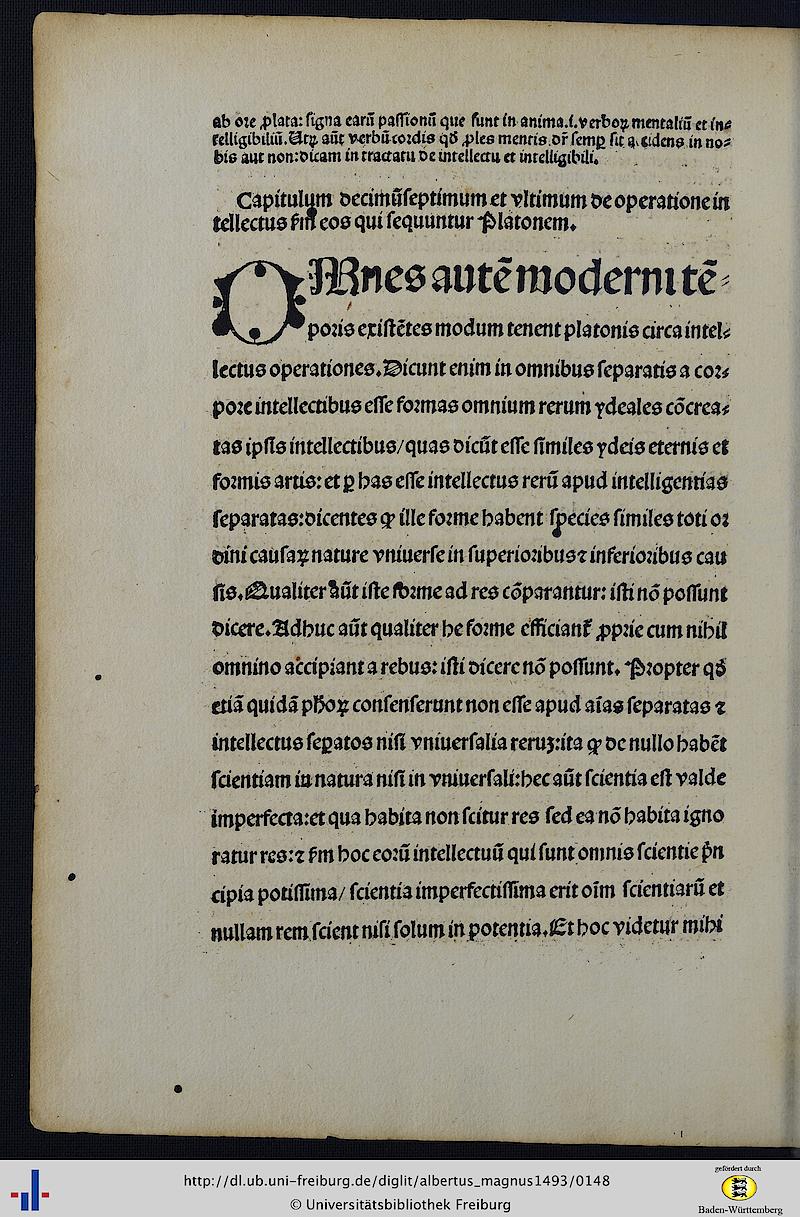 ab ore ꝓlata: signa earū passionū que sunt in anima.i.verboꝝ mentaliū et in⸗
telligibiliū. Utꝝ aūt verbū cordis qḋ ꝓles mentis dr̄ semꝑ sit accidens in no⸗
bis aut non: dicam in tractatu de intellectu et intelligibili.
Capitulum decimūseptimum et vltimum de operatione in
tellectus ẜm eos qui sequuntur Platonem.
OMnes autē moderni tē⸗
poris existētes modum tenent platonis circa intel⸗
lectus operationes. Dicunt enim in omnibus separatis a cor⸗
pore intellectibus esse formas omnium rerum ydeales cōcrea⸗
tas ipsis intellectibus/quas dicūt esse similes ydeis eternis et
formis artis: et ꝑ has esse intellectus rerū apud intelligentias
separatas: dicentes ꝙ ille forme habent species similes toti or
dini causaꝝ nature vniuerse in superioribus ⁊ inferioribus cau
sis. Qualiter aūt iste forme ad res cōparantur: isti nō possunt
dicere. Adhuc aūt qualiter he forme efficiant̄ ꝓprie cum nihil
omnino accipiant a rebus: isti dicere nō possunt. Propter qḋ
etiā quidā pħoꝝ consenserunt non esse apud aīas separatas ⁊
intellectus seꝑatos nisi vniuersalia reruꝫ: ita ꝙ de nullo habēt
scientiam in natura nisi in vniuersali: hec aūt scientia est valde
imperfecta: et qua habita non scitur res sed ea nō habita igno
ratur res: ⁊ ẜm hoc eorū intellectuū qui sunt omnis scientie p̄n
cipia potissima/ scientia imperfectissima erit oīm scientiarū et
nullam rem scient nisi solum in potentia. Et hoc videtur mihi
http://dl.ub.uni-freiburg.de/diglit/albertus_magnus1493/0148
© Universitätsbibliothek Freiburg
gefördert durch
Baden-Württemberg